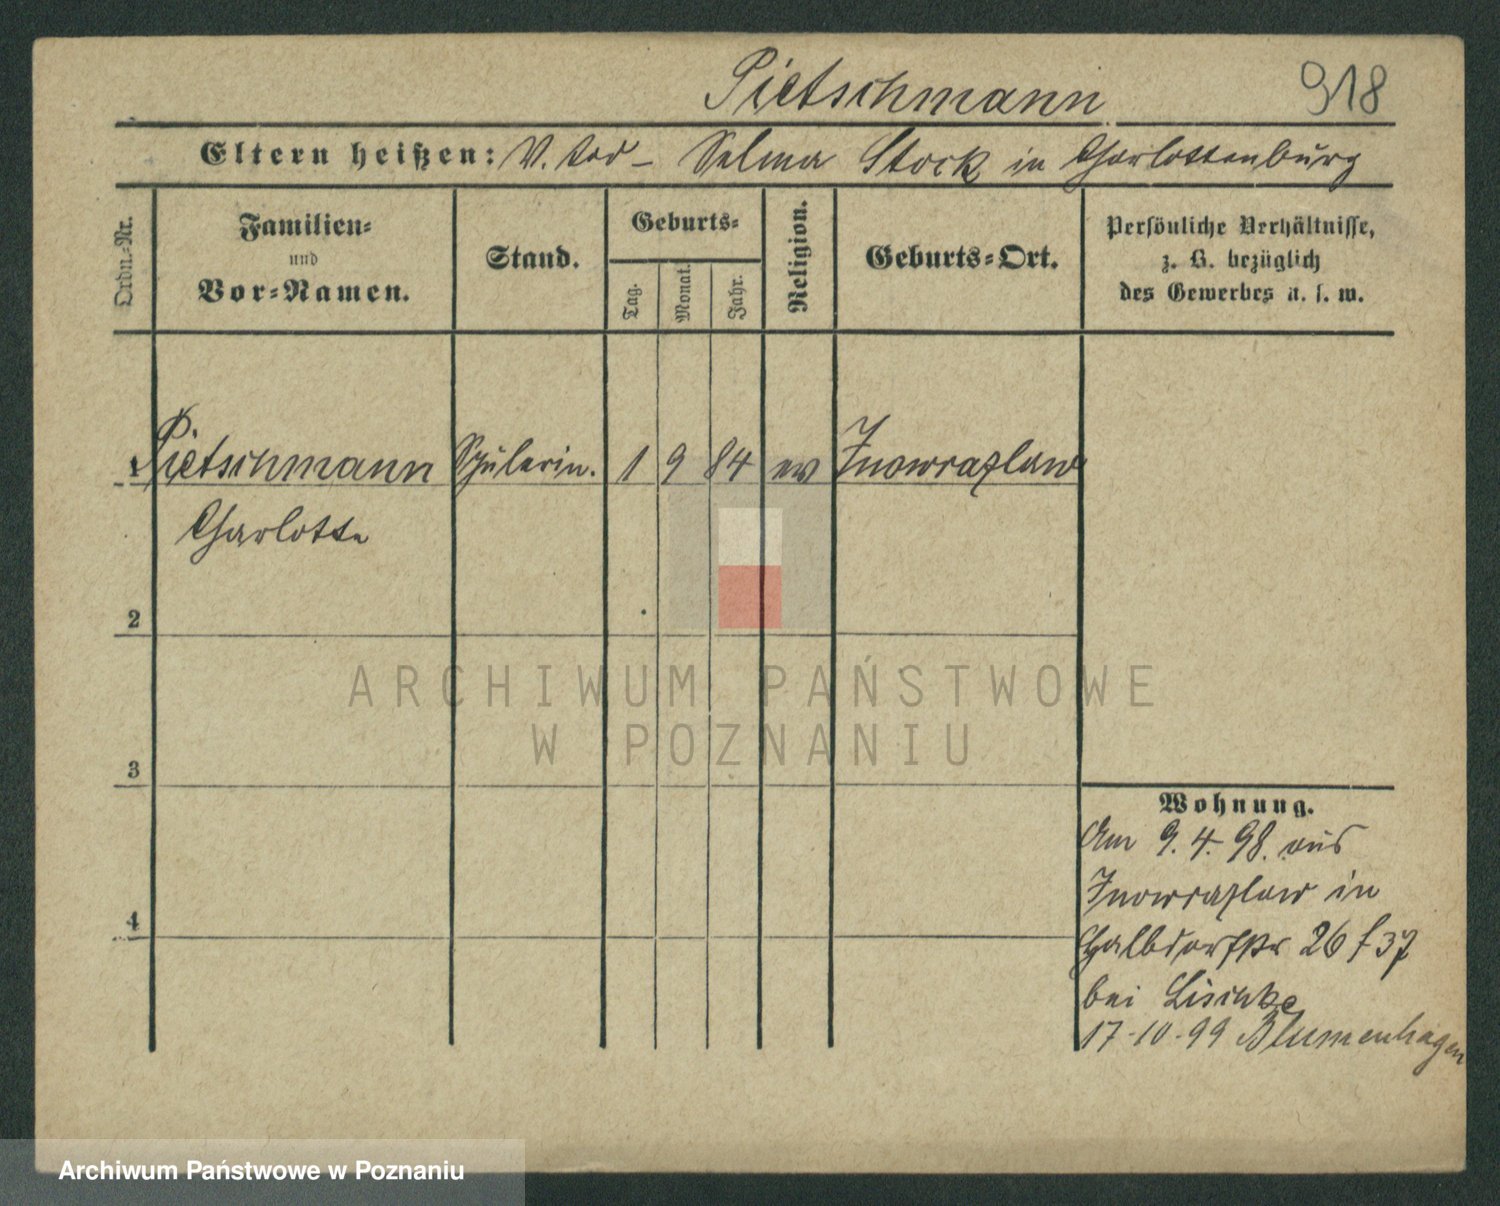 Pietschmann 918
Eltern heißen: V. tod – Selma Stock in Charlottenburg
Ordn.-Nr.
Familien-
und
Vor-Namen.
Stand.
Geburts-
Tag.
Monat.
Jahr.
Religion.
Geburts-Ort.
Persönliche Verhältnisse,
z. B. bezüglich
des Gewerbes u. s. w.
1 Pietschmann Schülerin. 1 9 84 ev Inowrazlaw
Charlotte
2
ARCHIWUM PAŃSTWOWE
W POZNANIU
3
Wohnung.
Am 9. 4. 98. aus
Inowrazlaw in
4
Halbdorfstr 26 f 37
bei Lischke
17-10-99 Blumenhagen
Archiwum Państwowe w Poznaniu